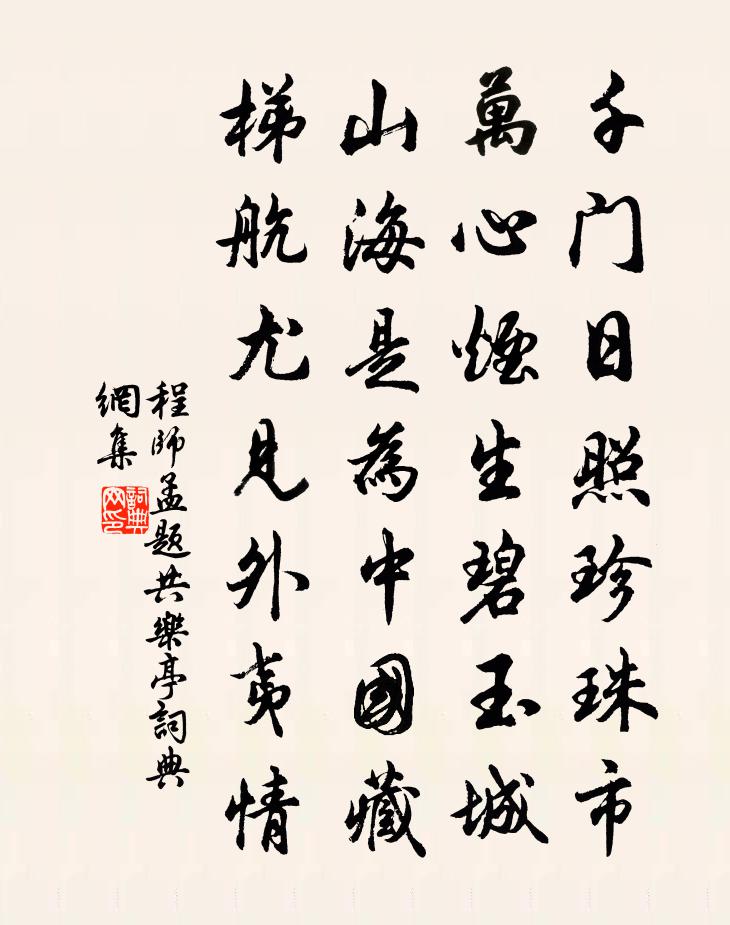 千门日照珍珠市
萬心煙生碧玉城
山海是為中國藏
梯航尤見外夷情
程師孟题共樂亭詞典
網集
詞典
网印